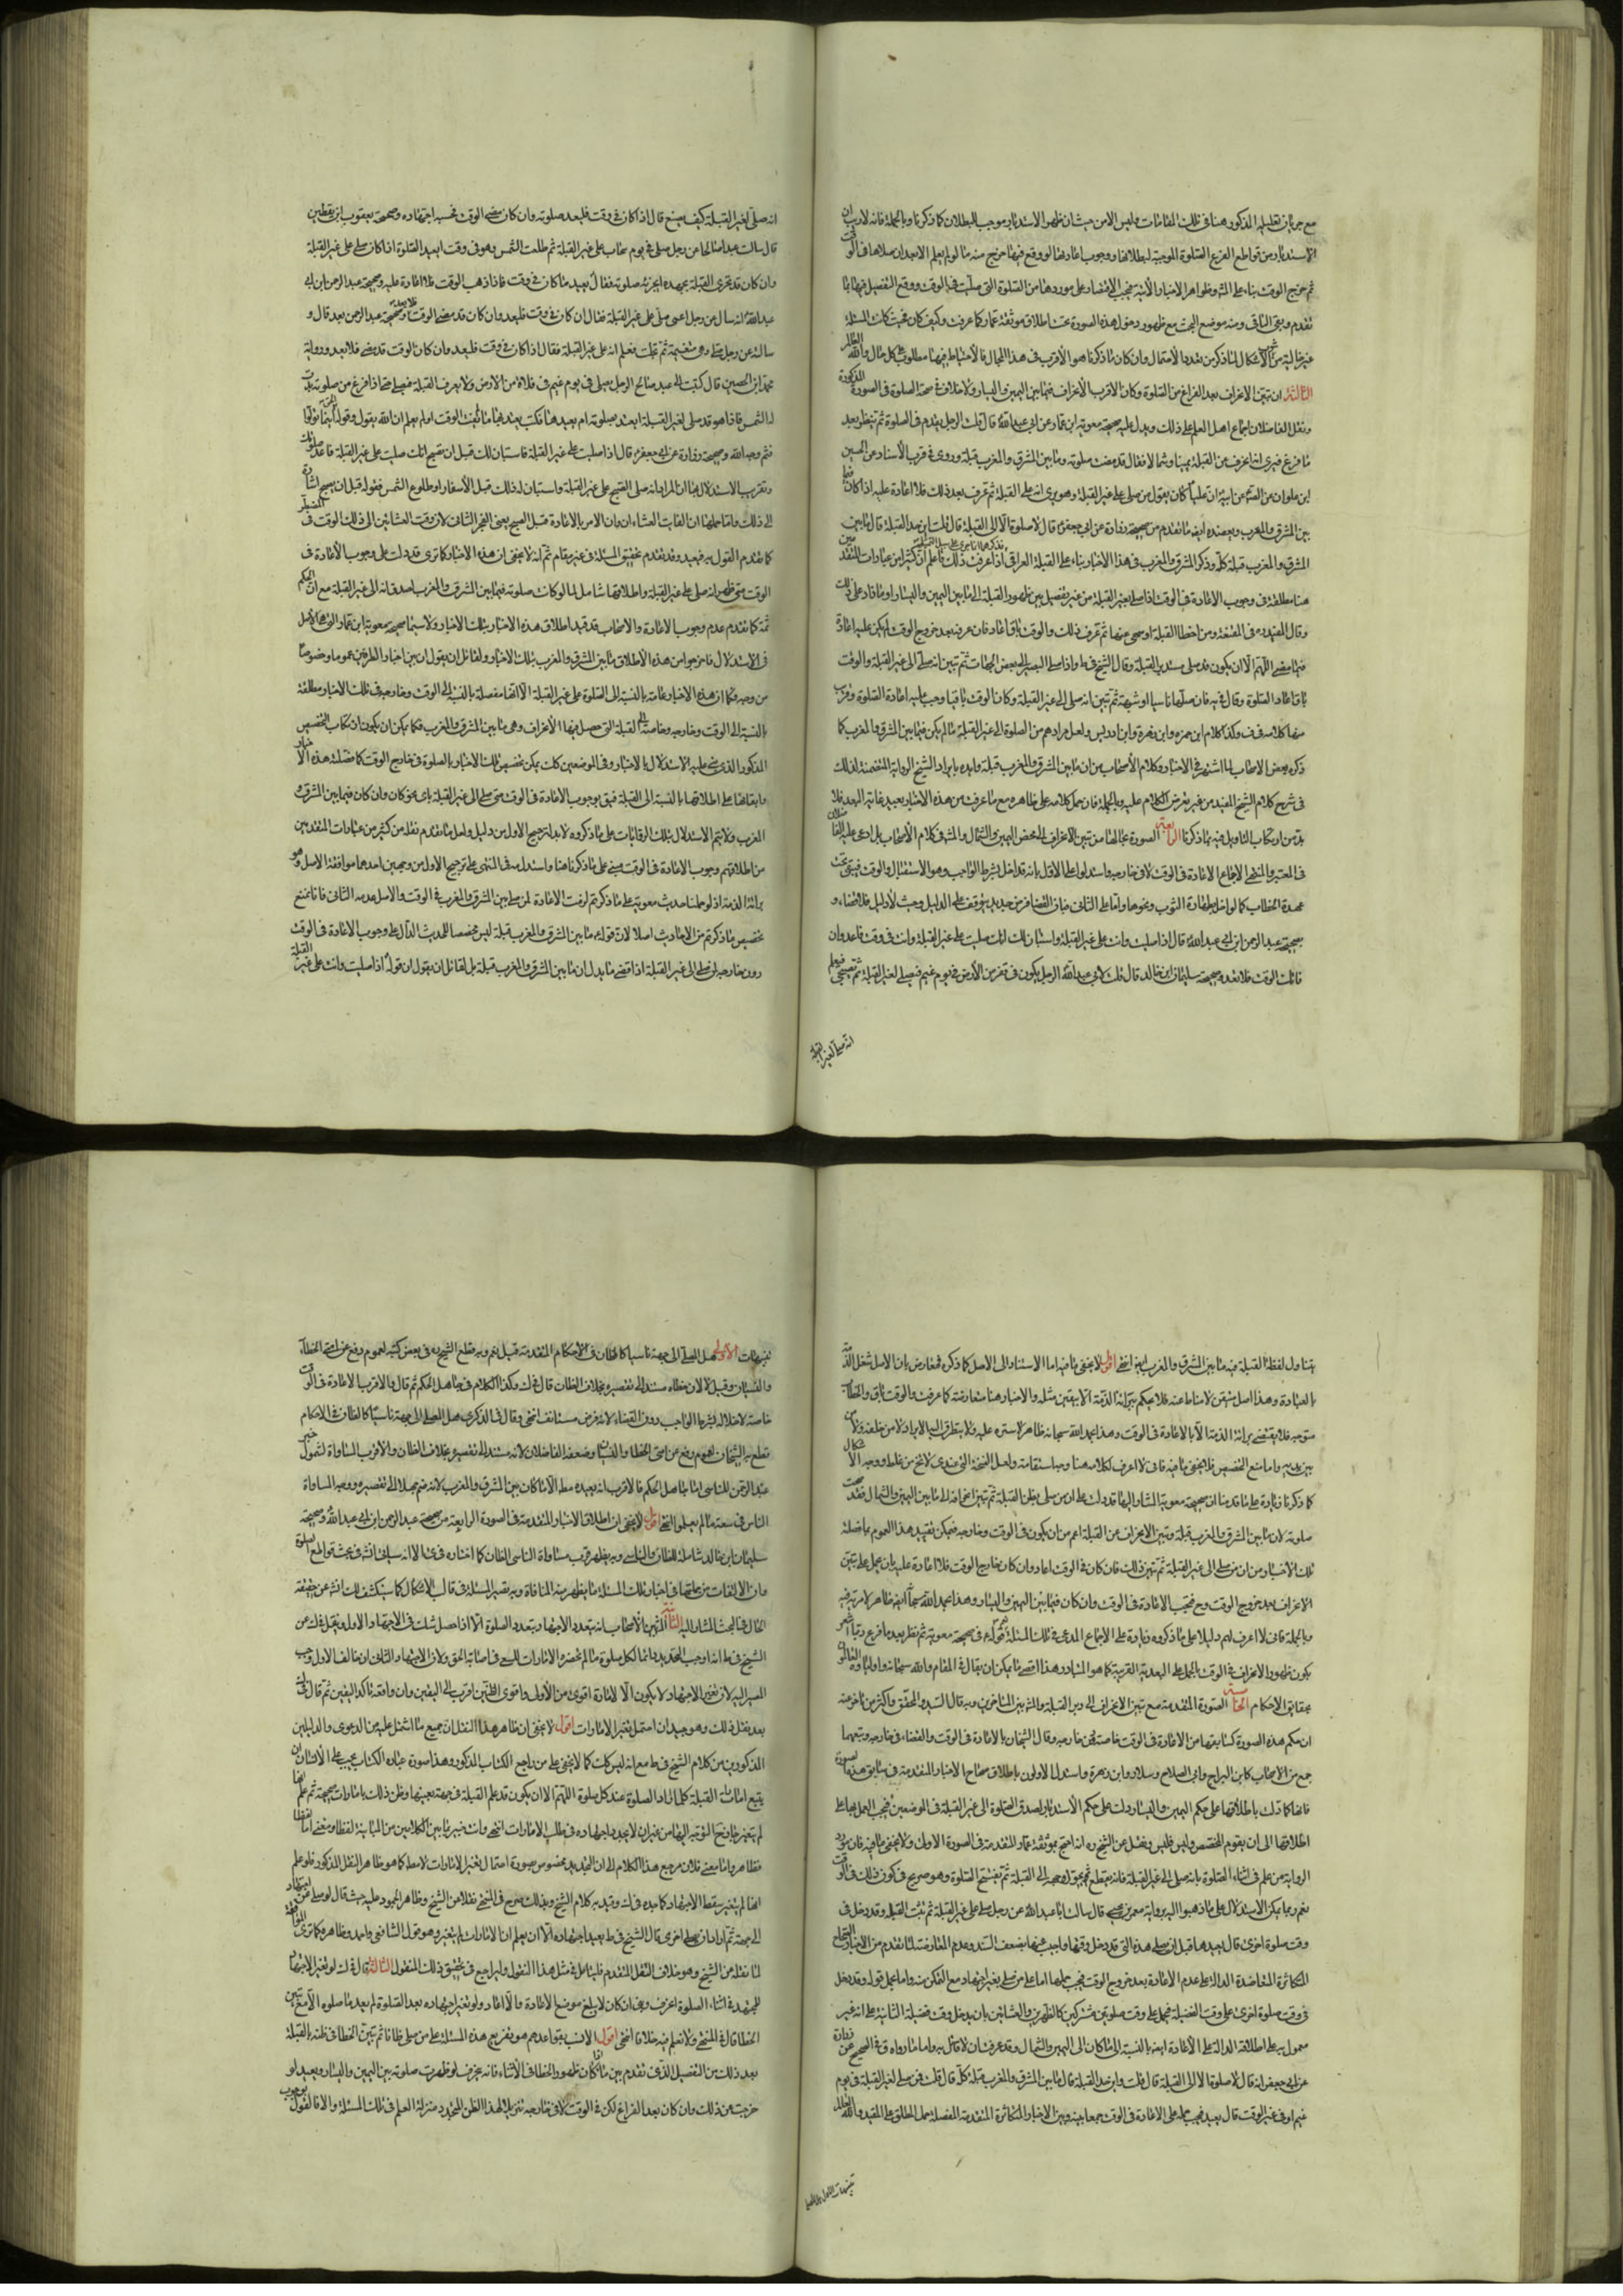 مع جريان تعليله المذكور هنا في تلك المقامات وليس الامن حيث ان ظهور الاستدبار موجب للبطلان كما ذكرنا وبالجملة فانه لا ريب ان
الاستدبار من قواطع الصلوة الموجبة لبطلانها ووجوب اعادتها لو وقع فيها خرج منه ما لو لم يعلم الا بعد ان صلاها في الوقت
ثم خرج الوقت بناء على المش وظواهر الاخبار الاتية فيجب الاقتصار على موردها من الصلوة التي صليت في الوقت ووقع التفصيل فيها بما
تقدم وبقي الباقي ومنه موضع البحث مع ظهور دخول هذه الصورة تحت اطلاق موثقة عمار كما عرفت وكيف كان فحيث كانت المسئلة
غير خالية من الاشكال لما ذكر من تعدد الاحتمال وان كان ما ذكرنا هو الاقرب في هذا المجال فالاحتياط فيها مطلوب على كل حال والله العالم
الثالثة ان تبين الانحراف بعد الفراغ من الصلوة وكان الانحراف فيما بين اليمين واليسار ولا خلاف في صحة الصلوة في الصورة المذكورة
ونقل الفاضلان اجماع اهل العلم على ذلك ويدل عليه صحيحة معوية ابن عمار عن ابي عبد الله قال قلت الرجل يقوم في الصلوة ثم ينظر بعد
ما فرغ فيرى انه انحرف عن القبلة يمينا وشمالا فقال قد مضت صلوته وما بين المشرق والمغرب قبلة وروى في قرب الاسناد عن الحسين
ابن علوان عن الصادق عن ابيه ان عليا كان يقول من صلى على غير القبلة وهو يرى انه على القبلة ثم عرف بعد ذلك فلا اعادة عليه اذا كان فيما
بين المشرق والمغرب ويعضده ايضا ما تقدم من صحيحة زرارة عن ابي جعفر قال لا صلوة الا الى القبلة قال قلت اين حد القبلة قال ما بين
المشرق والمغرب قبلة كله وذكر المشرق والمغرب في هذا الاخبار بناء على القبلة العراقي اذا عرفت ذلك فاعلم ان كثيرا من عبارات المتقدمين
هنا مطلقة في وجوب الاعادة في الوقت اذا صلى لغير القبلة من غير تفصيل بين ظهور القبلة الى ما بين اليمين واليسار او ما زاد على ذلك
وقال المفيد ره في المقنعة ومن اخطا القبلة او سهى عنها ثم عرف ذلك والوقت باق اعاد فان عرف بعد خروج الوقت لم يكن عليه اعادة
فيما مضى اللهم الا ان يكون قد صلى مستدبر القبلة وقال الشيخ في ط واذا صلى البصير الى بعض الجهات ثم تبين انه صلى الى غير القبلة والوقت
باق اعاد الصلوة وقال في يه فان صلاها ناسيا او شبهة ثم تبين انه صلى الى غير القبلة وكان الوقت باقيا وجب عليه اعادة الصلوة وقرب
منها كلامه في ف وكذا كلام ابن حمزه وابن زهرة وابن ادريس ولعل مرادهم من الصلوة الى غير القبلة ما لم يكن فيما بين المشرق والمغرب كما
ذكره بعض الاصحاب لما اشتهر في الاخبار وكلام الاصحاب من ان ما بين المشرق والمغرب قبلة وايده بايراد الشيخ الرواية المتضمنة لذلك
في شرح كلام الشيخ المفيد من غير تعرض الكلام عليه وبالجملة فان حمل كلامه على ظاهره مع ما عرفت من هذه الاخبار بعيد غاية البعد فلا
بد من ارتكاب التاويل فيه بما ذكرنا الرابعة الصورة بحالها من تبين الانحراف الى محض اليمين والشمال والمش في كلام الاصحاب بل ادعى عليه الفاضلان
في المعتبر والمنتهى الاجماع الاعادة في الوقت لا في خارجه واستدلوا على الاول بانه قد اخل بشرط الواجب وهو الاستقبال والوقت فيبقى تحت
عهدة الخطاب كما لو اخل بطهارة الثوب ونحوها واما على الثاني فبان القضاء فرض جديد يتوقف على الدليل وحيث لا دليل فلا قضاء و
بصحيحة عبد الرحمن ابن ابي عبد الله قال اذا صليت وانت على غير القبلة واستبان لك انك صليت على غير القبلة وانت في وقت فاعد وان
فاتك الوقت فلا تعد وصحيحة سليمان ابن خالد قال قلت لابي عبد الله الرجل يكون في قفر من الارض في يوم غيم فيصلي لغير القبلة ثم يضحى فيعلم
انه صلى لغير القبلة
انه صلى لغير القبلة كيف يصنع قال اذا كان في وقت فليعد صلوته وان كان مضى الوقت فحسبه اجتهاده وصحيحة يعقوب ابن يقطين
قال سالت عبدا صالحا عن رجل صلى في يوم سحاب على غير القبلة ثم طلعت الشمس وهو في وقت ايعيد الصلوة اذا كان صلى على غير القبلة
وان كان قد تحرى القبلة بجهده ايجزئه صلوته فقال يعيد ما كان في وقت فاذا ذهب الوقت فلا اعادة عليه وصحيحة عبد الرحمن ابن ابي
عبد الله انه سال عن رجل اعمى صلى على غير القبلة فقال ان كان في وقت فليعد وان كان قد مضى الوقت فلا يعد وصحيحة عبد الرحمن بعد قال و
سالته عن رجل صلى وهي متغيمة ثم تجلت فعلم انه على غير القبلة فقال اذا كان في وقت فليعد وان كان الوقت قد مضى فلا يعد ورواية
محمد ابن الحصين قال كتبت الى عبد صالح الرجل يصلي في يوم غيم في فلاة من الارض ولا يعرف القبلة فيصلي حتى اذا فرغ من صلوته بدت
له الشمس فاذا هو قد صلى لغير القبلة ايعتد بصلوته ام يعيدها فكتب يعيدها ما لم يفت الوقت اولم يعلم ان الله يقول وقوله الحق فاينما تولوا
فثم وجه الله وصحيحة زرارة عن ابي جعفر قال اذا صليت على غير القبلة فاستبان لك قبل ان تصبح انك صليت على غير القبلة فاعد صلوتك
وتقريب الاستدلال هنا ان المراد انه صلى الصبح على غير القبلة واستبان له ذلك قبل الاسفار او طلوع الشمس فقوله قبل ان يصبح اشارة
الى ذلك واما حملها ان الفايت العشاء ان وان الامر بالاعادة قبل الصبح يعني الفجر الثاني لان وقت العشائين الى ذلك الوقت في المضطر
كما تقدم القول به فبعيد وقد تقدم تحقيق المسئلة في غير مقام ثم انه لا يخفى ان هذه الاخبار كما ترى قد دلت على وجوب الاعادة في
الوقت متى ظهر انه صلى على غير القبلة واطلاقها شامل لما لو كانت صلوته فيما بين المشرق والمغرب لصدق انه الى غير القبلة مع ان الحكم
ثمة كما تقدم عدم وجوب الاعادة والاصحاب قد قيدوا اطلاق هذه الاخبار بتلك الاخبار ولا سيما صحيحة معوية ابن عمار التي هي الاصل
في الاستدلال فاخرجوا من هذه الاطلاق ما بين المشرق والمغرب بتلك الاخبار ولقائل ان يقول ان بين اخبار الطرفين عموما وخصوصا
من وجه فكما ان هذه الاخبار عامة بالنسبة الى الصلوة على غير القبلة الا انها مفصلة بالنسبة الى الوقت وخارجه في تلك الاخبار مطلقة
بالنسبة الى الوقت وخارجه وخاصة الى القبلة التي حصل فيها الانحراف وهي ما بين المشرق والمغرب فكما يمكن ان يكون ارتكاب التخصيص
المذكور الذي بنى عليه الاستدلال بالاخبار وفي الموضعين كذلك يمكن تخصيص تلك الاخبار بالصلوة في خارج الوقت كما فصلته هذه الاخبار
وابقائها على اطلاقها بالنسبة الى القبلة فيبقى وجوب الاعادة في الوقت متى صلى الى غير القبلة باي نحو كان وان كان فيما بين المشرق و
المغرب ولا يتم الاستدلال بتلك الروايات على ما ذكروه لا بد لترجيح الاول من دليل ولعل ما تقدم نقله من كثير من عبارات المتقدمين
من اطلاقهم وجوب الاعادة في الوقت مبني على ما ذكرناه هنا واستدل في المنتهى على ترجيح الاول من وجهين احدهما موافقة الاصل وهو
برائة الذمة اذ لو حملنا حديث معوية على ما ذكرتم لزمت الاعادة لمن صلى بين المشرق والمغرب في الوقت والاصل عدمه الثاني انا نمنع
تخصيص ما ذكرتم من الاحاديث اصلا لان قوله ما بين المشرق والمغرب قبلة ليس مخصصا للحديث الدال على وجوب الاعادة في الوقت
دون خارجه لمن صلى الى غير القبلة اذ اقصى ما يدل ان ما بين المشرق والمغرب قبلة بل لقائل ان يقول ان قوله اذا صليت وانت على غير القبلة
يتناول لفظ القبلة فيه ما بين المشرق والمغرب ايضا انتهى اقول لا يخفى ما فيه اما الاستناد الى الاصل كما ذكره فمعارض بان الاصل شغل الذمة
بالعبادة وهذا اصل متيقن لا مناط عنه فلا يحكم ببرائة الذمة الا بيقين مثله والاخبار هنا متعارضة كما عرفت والوقت باق والخطاب
متوجه فلا يقتضي برائة الذمة الا بالاعادة في الوقت وهذا بحمد الله سبحانه ظاهر لا سترة عليه ولا يتطرق اليه الايراد لا من خلفه ولا من
بين يديه واما منع التخصيص فلا يخفى ما فيه فاني لا اعرف لكلامه هنا وجها استقامة ولعل النسخة التي عندي لا تخ من غلط ووجه الاشكال
كما ذكرنا وزيادة على ما قدمنا ان صحيحة معوية المشار اليها قد دلت على ان من صلى بظن القبلة ثم تبين انحرافه الى ما بين اليمين والشمال فقد صحت
صلوته لان ما بين المشرق والمغرب قبلة وتبين الانحراف عن القبلة اعم من ان يكون في الوقت وخارجه فيمكن تقييد هذا العموم بما فصلته
تلك الاخبار من ان من صلى الى غير القبلة ثم تبين ذلك فان كان في الوقت اعاد وان كان خارج الوقت فلا اعادة عليه بان يحمل على تبين
الانحراف بعد خروج الوقت وح فيجب الاعادة في الوقت وان كان فيما بين اليمين واليسار وهذا بحمد الله سبحانه ايضا ظاهر لا مرية فيه
وبالجملة فاني لا اعرف لهم دليلا على ما ذكروه زيادة على الاجماع المدعى في تلك المسئلة نعم قوله في صحيحة معوية ثم ينظر بعد ما فرغ ربما اشعر
بكون ظهور الانحراف في الوقت بالحمل على البعدية القريبة كما هو المتبادر وهذا اقصى ما يمكن ان يقال في المقام والله سبحانه واولياؤه العالمون
بحقايق الاحكام الخامسة الصورة المتقدمة مع تبين الانحراف الى دبر القبلة والمش بين المتاخرين وبه قال السيد والمحقق واكثر من تاخر عنه
ان حكم هذه الصورة كسابقها من الاعادة في الوقت خاصة دون خارجه وقال الشيخان بالاعادة في الوقت والقضاء في خارجه وتبعهما
جمع من الاصحاب كابن البراج وابي الصلاح وسلار وابن زهرة واستدل الاولون باطلاق صحاح الاخبار المتقدمة في سابق هذه الصورة
فانها كما دلت باطلاقها على حكم اليمين واليسار دلت على حكم الاستدبار لصدق الصلوة الى غير القبلة في الموضعين فيجب العمل بها على
اطلاقها الى ان يقوم المخصص وليس فليس ونقل عن الشيخ ره انه احتج بموثقة عمار المتقدمة في الصورة الاولى ولا يخفى ما فيه فان مورد
الرواية من علم في اثناء الصلوة بانه صلى الى غير القبلة فانه يقطع ثم يحول وجهه الى القبلة ثم يفتتح الصلوة وهو صريح في كون ذلك في الوقت
نعم ربما يمكن الاستدلال على ما ذهبوا اليه برواية معمر بن يحيى قال سالت ابا عبد الله عن رجل صلى على غير القبلة ثم تبينت القبلة وقد دخل في
وقت صلوة اخرى قال يعيدها قبل ان يصلي هذه التي قد دخل وقتها واجيب عنها بضعف السند وعدم المعارضة لما تقدم من الاخبار الصحاح
المتكاثرة المتعاضدة الدالة على عدم الاعادة بعد خروج الوقت فيجب حملها اما على من صلى بغير اجتهاد مع التمكن منه واما بحمل قوله وقد دخل
في وقت صلوة اخرى على وقت الفضيلة فيحمل على وقت صلوتين مشتركين كالظهرين والعشائين بان يدخل وقت فضيلة الثانية على انه غير
معمول به على اطلاقه الدالة على الاعادة ايضا بالنسبة الى ما كان الى اليمين والشمال وقد عرفت ان لا قائل به واما ما رواه ق في الصحيح عن زرارة
عن ابي جعفر انه قال لا صلوة الا الى القبلة قال قلت واين حد القبلة قال ما بين المشرق والمغرب قبلة كله قال قلت فمن صلى لغير القبلة في يوم
غيم او في غير الوقت قال يعيد فيجب حمله على الاعادة في الوقت جمعا بينه وبين الاخبار المتكاثرة المتقدمة المفصلة بحمل المطلق على المقيد والله العالم
تنبيهات الاول هل المصلي
تنبيهات الاول هل المصلي الى جهة ناسيا كالظان في الاحكام المتقدمة قيل نعم وبه قطع الشيخ ره في بعض كتبه لعموم رفع عن امتي الخطا
والنسيان وقيل لا لان خطاه مستند الى تقصيره بخلاف الظان قال في ك وكذا الكلام في جاهل الحكم ثم قال والاقرب الاعادة في الوقت
خاصة لاخلاله بشرط الواجب دون القضاء لانه فرض مستانف انتهى وقال في الذكرى هل المصلي الى جهة ناسيا كالظان في الاحكام
قطع به الشيخان لعموم رفع عن امتي الخطا والنسيان وضعفه الفاضلان لانه مستند الى تقصيره بخلاف الظان والاقرب المساواة لشمول خبر
عبد الرحمن للناسي اما جاهل الحكم فالاقرب انه يعيد مطلقا الا ما كان بين المشرق والمغرب لانه ضم جهلا الى تقصيره ووجه المساواة
الناس في سعة ما لم يعلموا انتهى اقول لا يخفى ان اطلاق الاخبار المتقدمة في الصورة الرابعة من صحيحة عبد الرحمن ابن ابي عبد الله وصحيحة
سليمان ابن خالد شاملة للظان والناسي وبه يظهر قرب مساواة الناسي للظان كما اختاره في الا انه سياتي انش في بحث قواطع الصلوة
وان الالتفات من جملتها في اخبار تلك المسئلة ما يظهر منه المنافاة وبه تصير المسئلة في قالب الاشكال كما سينكشف لك انش عن حقيقة
الحال في البحث المشار اليه الثاني المش بين الاصحاب انه يتعدد الاجتهاد بتعدد الصلوة الا اذا حصل شك في الاجتهاد الاول ونقل في ك عن
الشيخ في ط انه اوجب التجديد دائما لكل صلوة ما لم تحضره الامارات للسعي في اصابة الحق ولان الاجتهاد الثاني ان خالف الاول وجب
المصير اليه لان تغير الاجتهاد لا يكون الا لامارة اقوى من الاول واقوى الظنين اقرب الى اليقين وان وافقه تاكد اليقين ثم قال في ك
بعد نقل ذلك وهو جيد ان احتمل تغير الامارات اقول لا يخفى ان ظاهر هذا النقل ان جميع ما اشتمل عليه من الدعوى والدليلين
المذكورين من كلام الشيخ في ط مع انه ليس كذلك كما لا يخفى على من راجع الكتاب المذكور وهذا صورة عبارة الكتاب يجب على الانسان ان
يتبع امارات القبلة كلما اراد الصلوة عند كل صلوة اللهم الا ان يكون قد علم القبلة في جهة بعينها وظن ذلك بامارات صحيحة ثم علم انها
لم يتغير جاز ح التوجه اليها من غير ان لا يجدد اجتهاده في طلب الامارات انتهى وانت خبير بما بين الكلامين من المباينة لفظا ومعنى اما لفظا
فظاهر واما معنى فلان مرجع هذا الكلام الى ان التجديد مخصوص بصورة احتمال تغير الامارات لا مطلقا كما هو ظاهر النقل المذكور فلو علم
انها لم يتغير سقط الاجتهاد كما جده في ك وقيد به كلام الشيخ وبذلك صرح في المنتهى نقلا عن الشيخ وظاهر الجمود عليه حيث قال لو صلى عن اجتهاد
الى جهة ثم اراد ان يصلي اخرى قال الشيخ في ط يعيد اجتهاده الا ان يعلم ان الامارات لم يتغير وهو قول الشافعي واحمد وظاهره كما ترى الموافقة
لما نقله عن الشيخ وهو خلاف النقل المتقدم فليتامل في مثل هذا النقول وليراجع في تحقيق ذلك المنقول الثالث قال في ك لو تغير الاجتهاد
للمجتهد في اثناء الصلوة انحرف وبنى ان كان لا يبلغ موضع الاعادة والا اعاد ولو تغير اجتهاده بعد الصلوة لم يعد ما صلوه الا مع تبين
الخطا قال في المنتهى ولا نعلم فيه خلافا انتهى اقول الانسب بقواعدهم هو تفريع هذه المسئلة على من صلى ظانا ثم تبين الخطا في ظنه بالقبلة
بعد ذلك من التفصيل الذي تقدم بين ما اذا كان ظهور الخطا في الاثناء فانه ينحرف لو ظهرت صلوته بين اليمين واليسار ويعيد لو
خرجت من ذلك وان كان بعد الفراغ لكن في الوقت لا في خارجه تنزيلا لهذا الظن المتجدد منزلة العلم في تلك المسئلة والا فالقول بوجوب